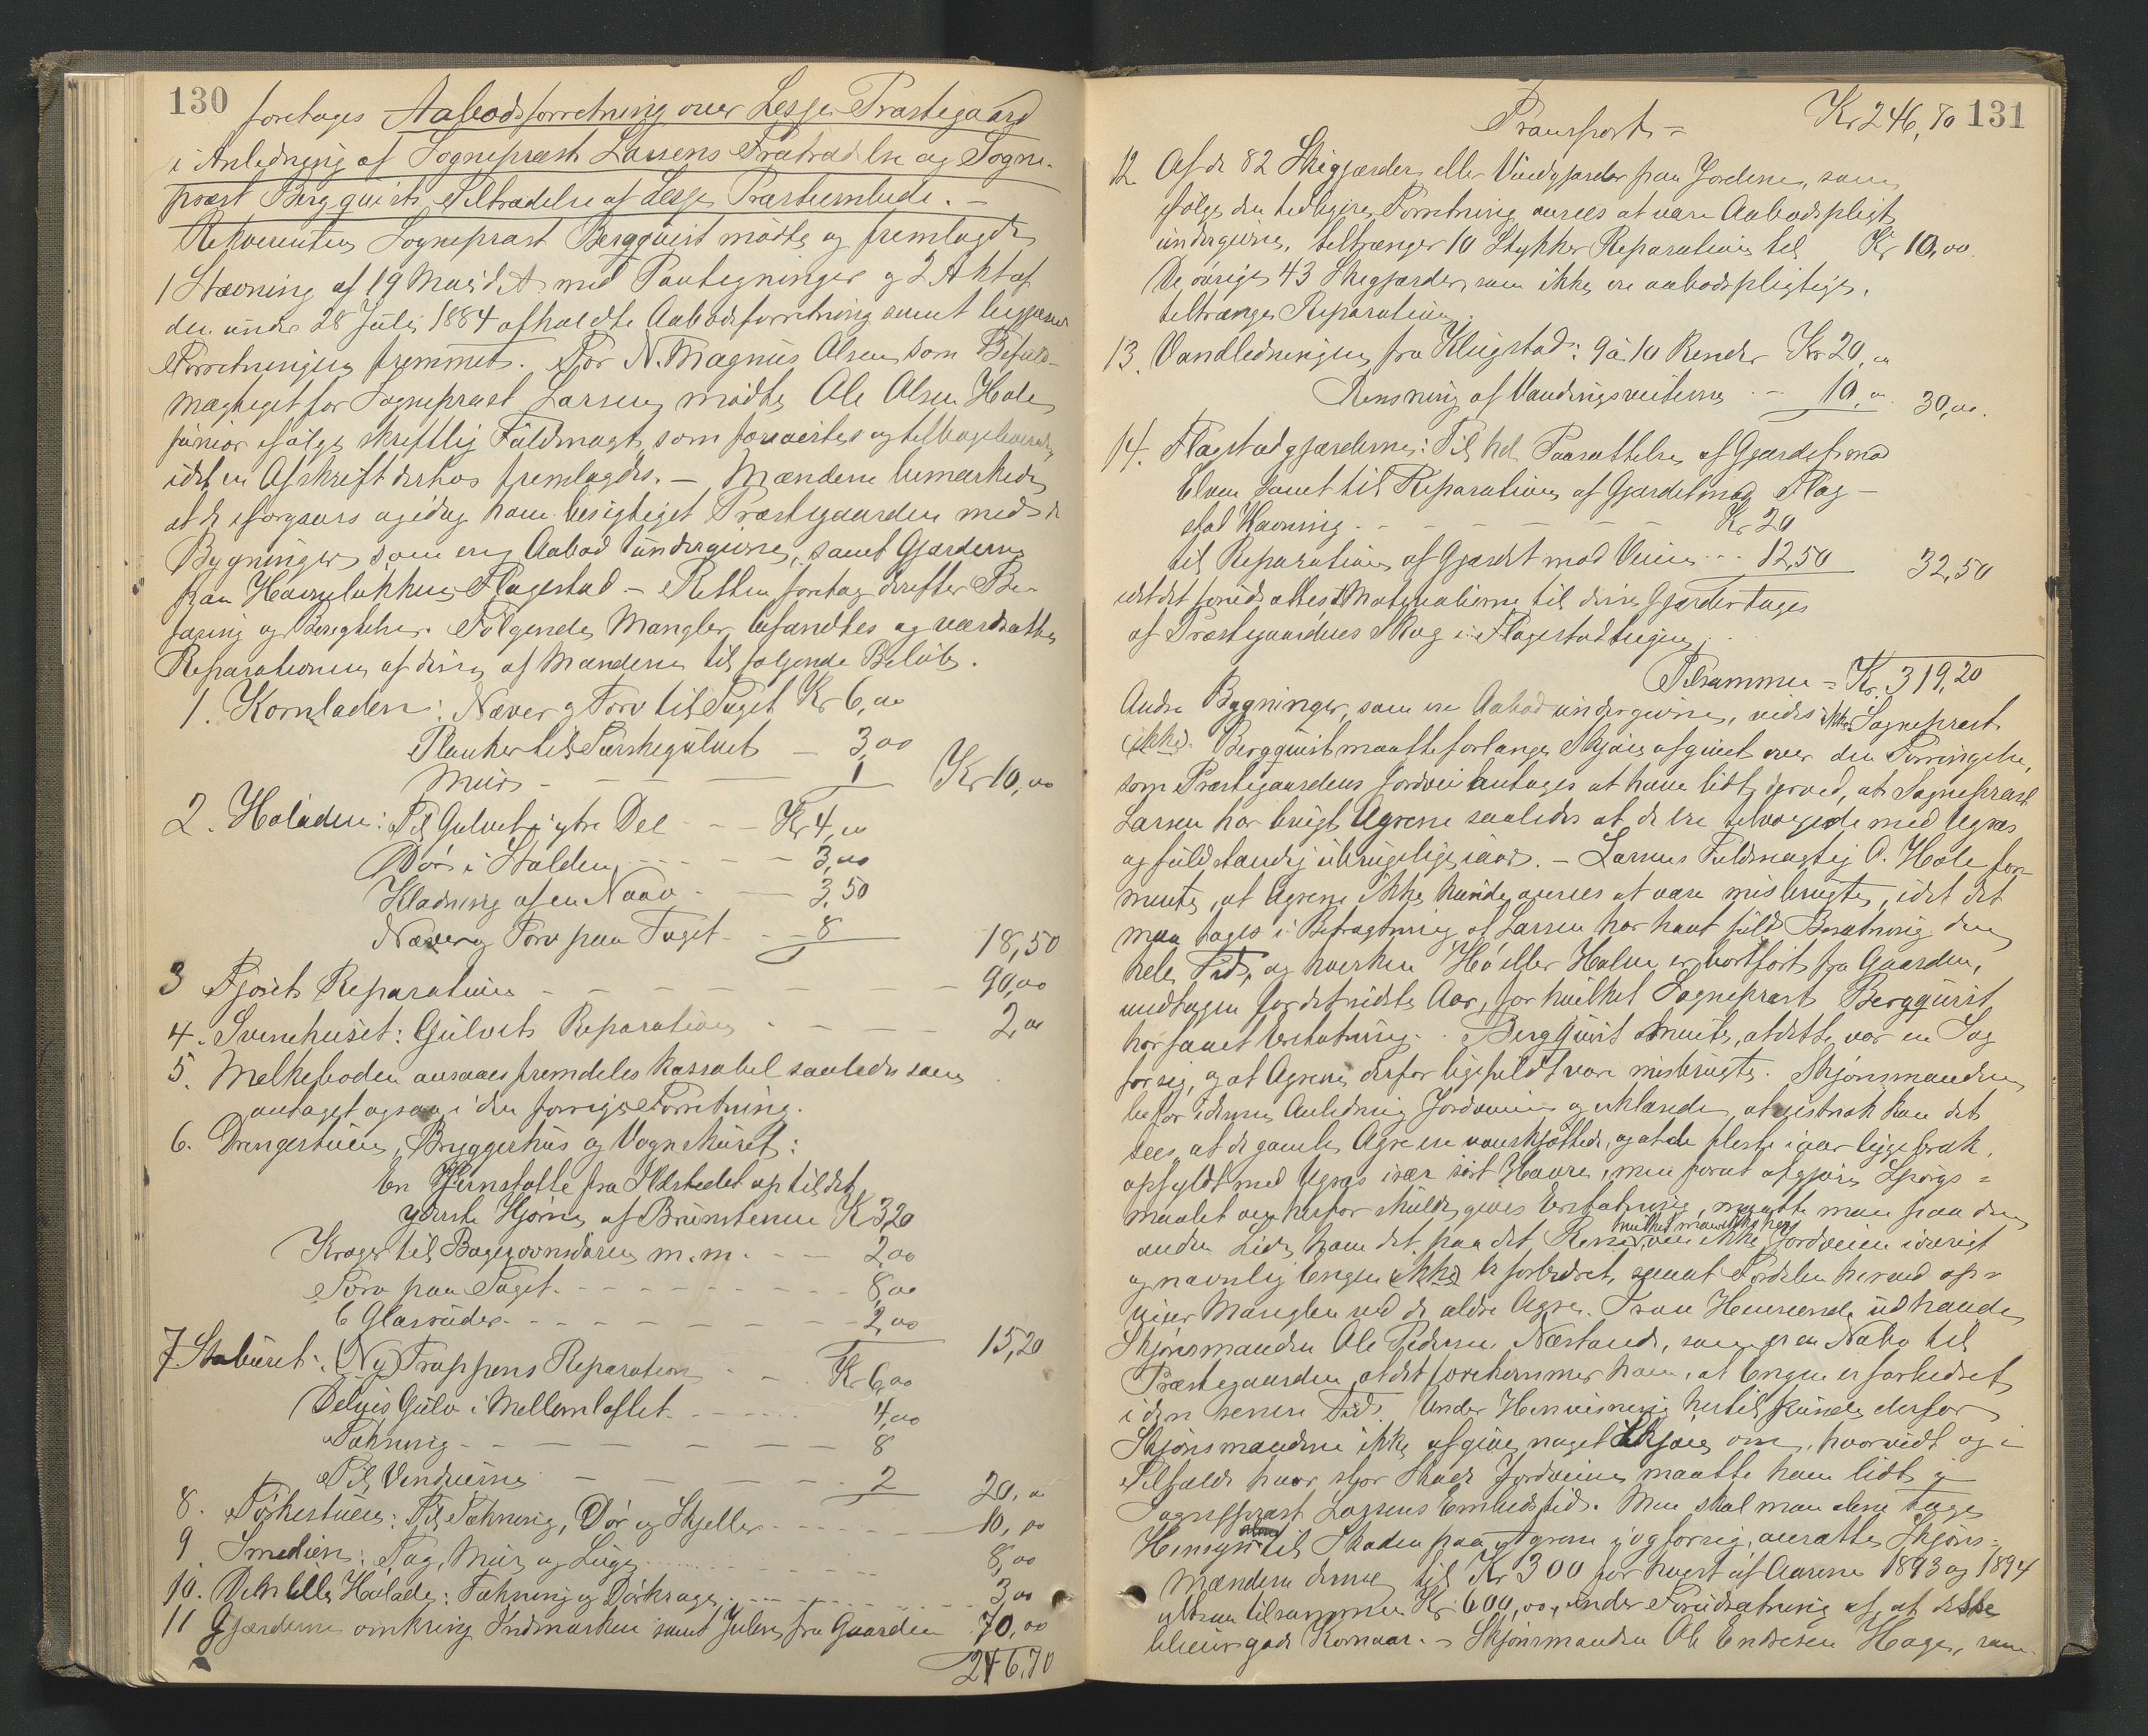 130
foretages Aabodsforretning over Lesje Præstegaard
i Anledning af Sogneprest Larsens Fratrædelse og Sogne-
præst Bergquists Tiltrædelse af Lesje Præsteembede. –
Rekvirenten Sogneprest Bergquist mødte og fremlagde
1 Stævning af 19 Mai d. A. med Paategninger og 2 Akt af
den under 28 Juli 1884 afholdte Aabodsforretning samt begjærede
Forretningen fremmet. For N. Magnus Olsen som Befuld-
mægtiget for Sogneprest Larsen mødte Ole Olsen Hole
junior ifølge skriftlig Fuldmagt, som forevistes og tilbageleveredes
idet en Afskrift derhos fremlagdes. – Mændene bemærkede
at de iforgaars og idag have besigtiget Præstegaarden med de
Bygninger, som ere Aabod undergivne, samt Gjærderne
paa Havnelykken Flagestad – Retten foretog derefter Be-
faring og Besigtelse. Følgende Mangler befandtes og værdsattes
Reparationen af disse af Mændene til følgende Beløb.
1. Kornladen: Næver og Torv til Taget Kr 6,00
Planker til Tærskegulvet – 3,00
Mur – – – 1 Kr 10,00
2. Høladen: Til Gulvet i ytre Del – – Kr 4,00
Dør i Stalden – – – – 3,00
Klædning af en Nov – – 3,50
Næver og Torv paa Taget – – 8 18,50
3 Fjøsets Reparation – – – – – – – 90,00
4. Svinehuset: Gulvets Reparation – – – – 2,00
5. Melkeboden ansaaes fremdeles kassabel saaledes som
antaget ogsaa i den forrige Forretning.
6. Drengestuen, Bryggerhus og Vognskuret:
En Hjørnstøtte fra Ildstedet op til det
yderste Hjørne af Brunstenen K 3,20
Kroger til Bagerovnsdøren m.m. – – 2,00
Torv paa Taget – – – – – – – 8,00
6 Glasruder – – – – – – – 2,00 15,20
7 Stabburet: (Ny) Trappens Reparation – – Kr 6,00
Delvis Gulv i Mellemloftet – – – – 4,00
Tækning – – – – – – – 8
Til Vinduerne – – – – – 2 20,00
8. Tørkestuen: Til Tækning, Dør og Skjeller – – – – 10,00
9. Smedien: Tag, Mur og Luge – – – – 8,00
10. Den lille Hølade: Tækning og Dørkroge – – – – 3,00
11 Gjærderne omkring Indmarken samt Julen fra Gaarden 70,00
246,70
131
Transport = Kr 246,70
12. Af de 82 Skigjærder eller Vindgjærder paa Jordene, som
ifølge den tidligere Forretning ansees at være Aabodspligt
undergivne, tiltrænger 10 Stykker Reparation til Kr 10,00.
De øvrige 43 Skigjærder, som ikke ere aabodspligtige,
tiltrænge Reparation.
13. Vandledningen fra Klugstad: 9 à 10 Render Kr 20,00
Rensning af Vandingsveiterne – – 10,00. 30,00.
14. Flagestadgjærderne: Til hel Paasættelse af Gjærdet mod
Elven samt til Reparation af Gjærdet mod Flag-
stad Havning – – – – – – – Kr 20
til Reparation af Gjærdet mod Veien – – 12,50 32,50
idet det forudsættes at Materialierne til disse Gjærder tages
af Præstegaardens Skog i Flagestadteigen.
Tilsammen = Kr. 319,20
Andre Bygninger, som ere Aabod undergivne, vides ikke. Sogneprest
(ikke). Bergquist maatte forlange Skjøn afgivet over den Forringelse,
som Præstegaardens Jordvei antages at have lidt derved, at Sogneprest
Larsen har brugt Agrene saaledes at de ere tilvoxede med Ugræs
og fuldstændig ubrugelige iaar. – Larsens Fuldmægtig O. Hole for-
mente, at Agrene ikke kunde ansees at være misbrugte, idet det
maa tages i Betragtning at Larsen har havt fuld Besætning den
hele Tid, og hverken Hø eller Halm er bortført fra Gaarden,
undtagen for det sidste Aar, for hvilket Sogneprest Bergquist
har faaet Erstatning. – Bergquist mente, at dette var en Sag
for sig, og at Agrene derfor ligefuldt vare misbrugte. Skjønsmændene
befor i denne Anledning Jordveien og erklærede, at vistnok kan det
sees, at de gamle Agre ere vanskjøttede, og at de fleste iaar ligge brak,
opfyldt med Ugræs især sort Havre, men forat afgjøre Spørgs-
maalet om herfor skulde gives Erstatning, maatte man paa den
anden Side have det paa det Rene, hvilket man ikke har, om ikke Jordveien iøvrigt
og navnlig Engen (ikke) er forbedret, samt Fordelen herved op-
veier Manglen ved de ældre Agre. Foran Henseende udhævede
Skjønsmanden Ole Pedersen Nørstand, som er en Nabo til
Præstegaarden, at det forekommer ham, at Engen er forbedret
i den senere Tid. Under Henvisning hertil kunde derfor
Skjønsmændene ikke afgive noget Skjøn om, hvorvidt og i
Tilfælde hvor stor Skade Jordveien maatte have lidt i
Sogneprest Larsens Embedstid. Men skal man alene tage
Hensyn til Skaden paa Agrene i og for sig, ansatte Skjøns-
mændene denne til Kr 300 for hvert af Aarene 1893 og 1894
altsaa tilsammen Kr. 600,00, under Forudsætning af at disse
bliver gode Kornaar. – Skjønsmanden Ole Endresen Hage, som